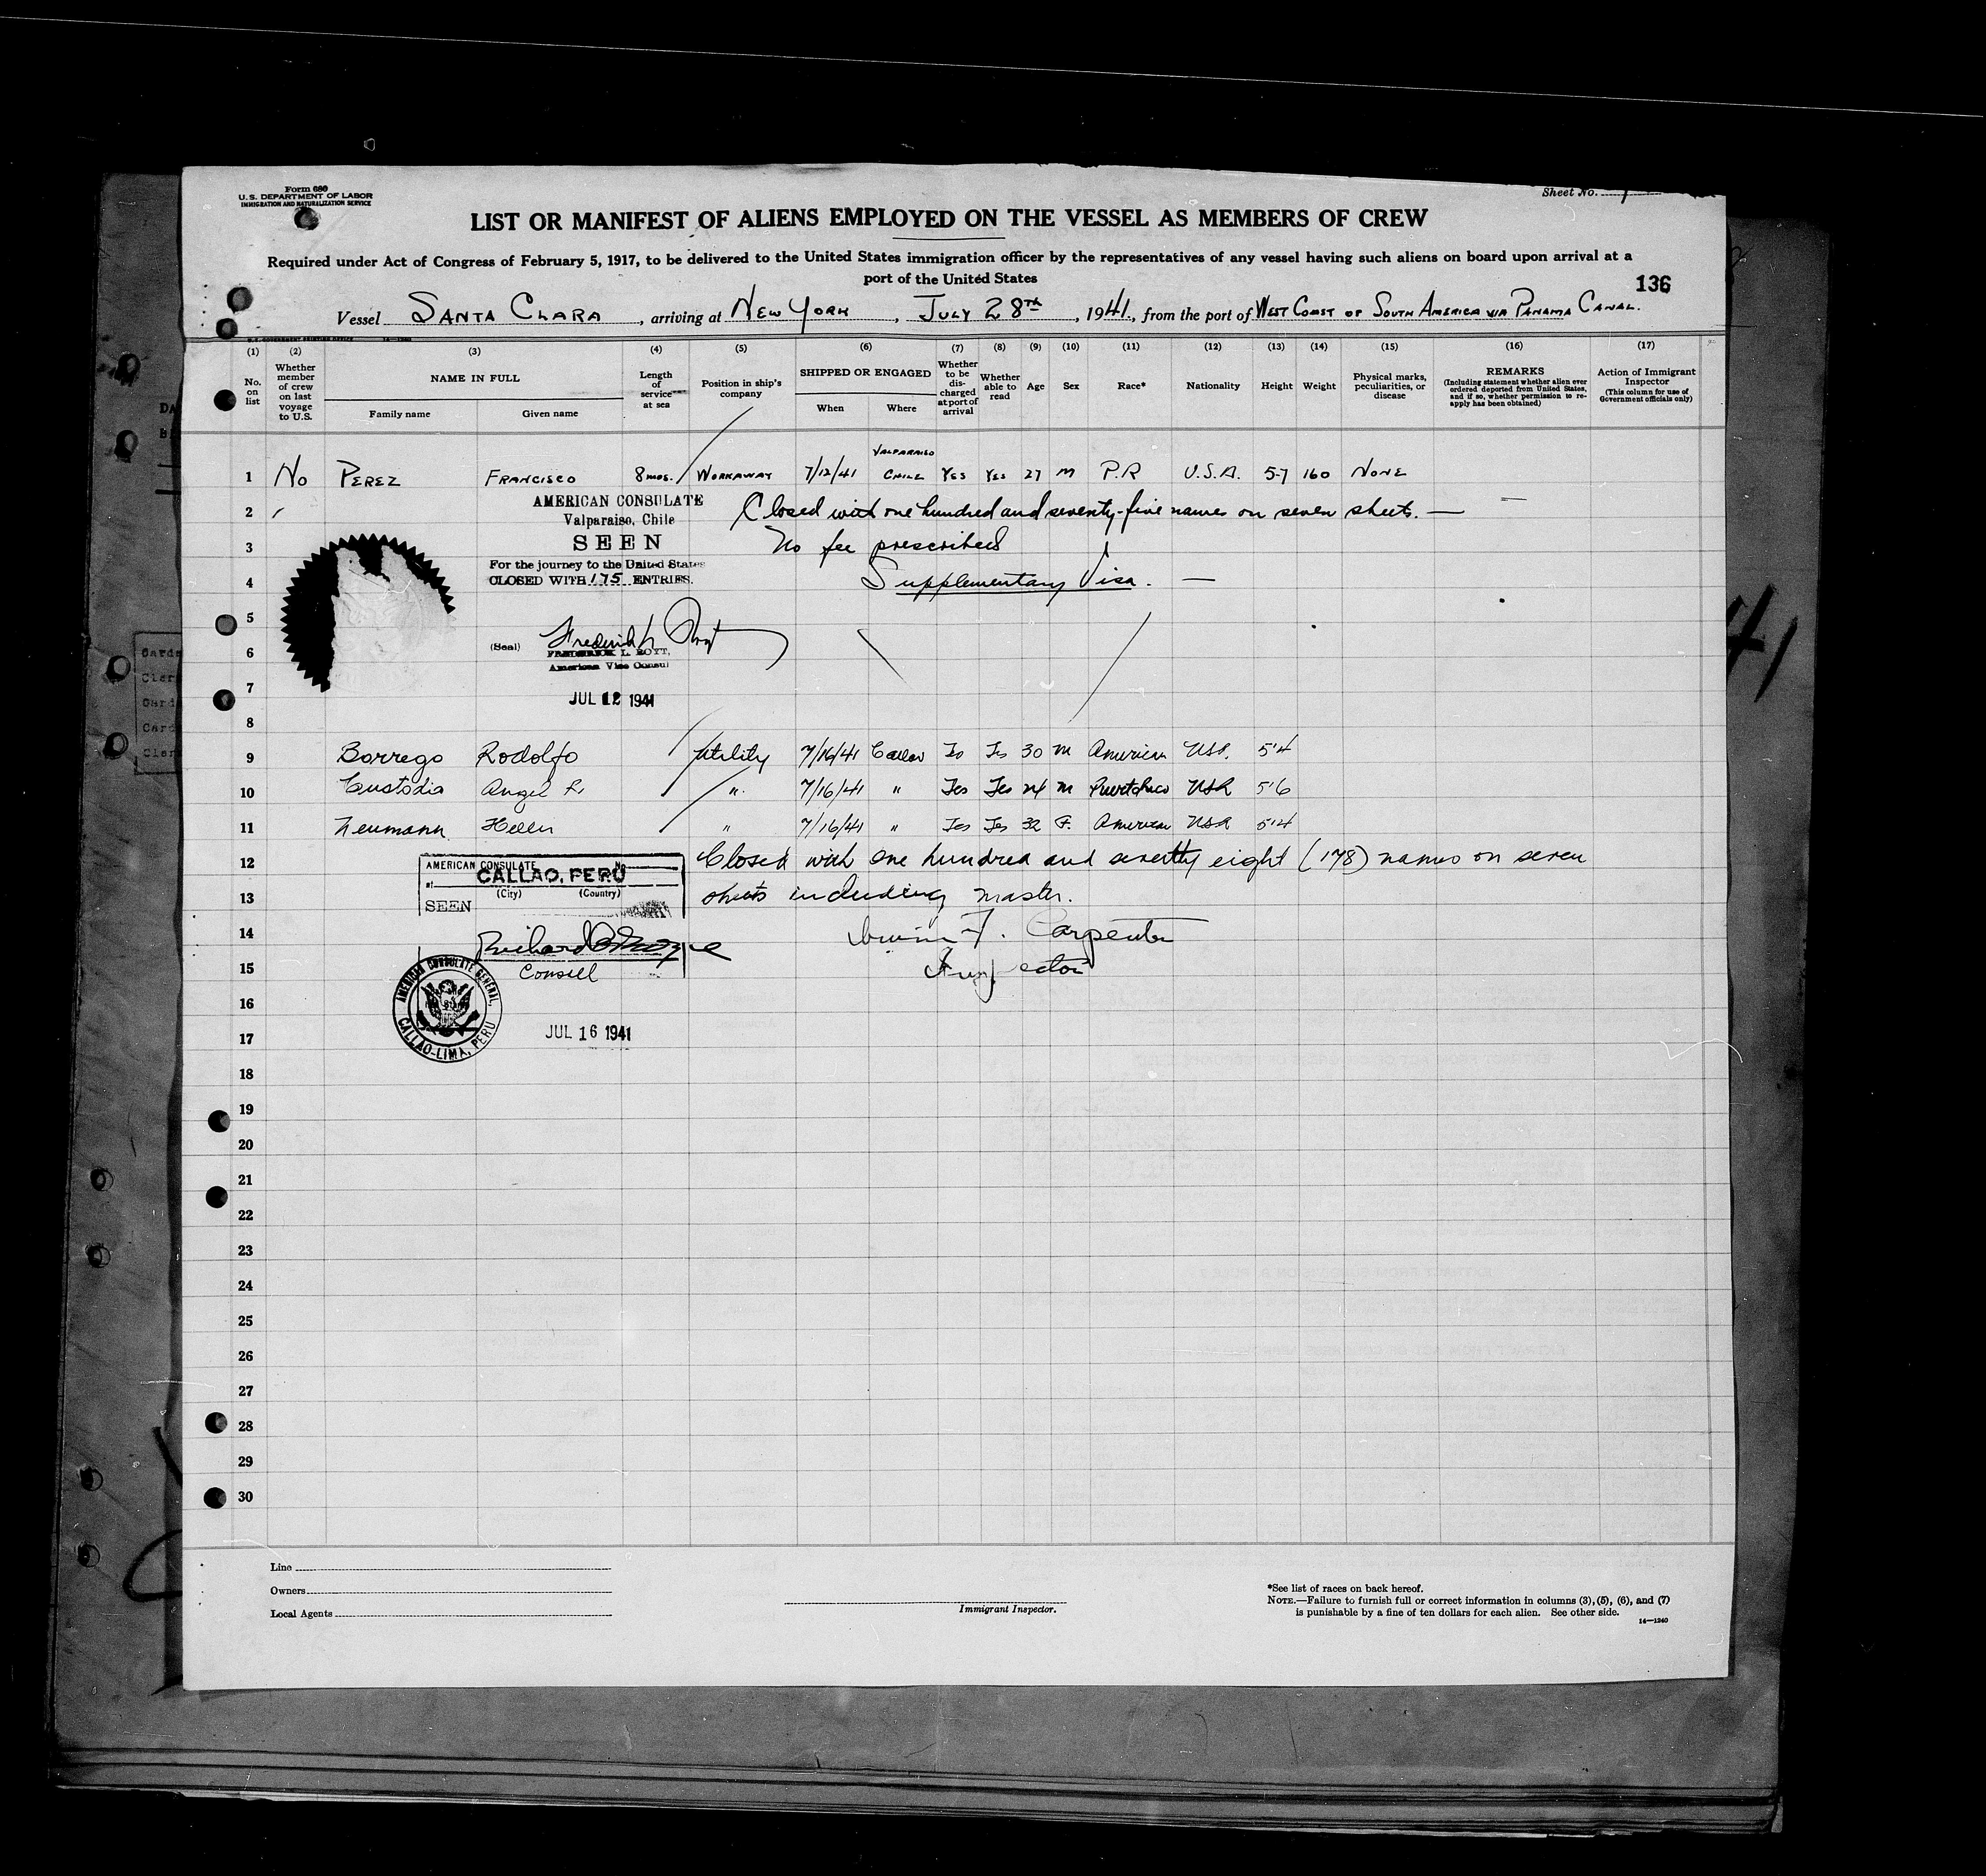 Form 680
U.S. DEPARTMENT OF LABOR
IMMIGRATION AND NATURALIZATION SERVICE
Sheet No.
LIST OR MANIFEST OF ALIENS EMPLOYED ON THE VESSEL AS MEMBERS OF CREW
Required under Act of Congress of February 5, 1917, to be delivered to the United States immigration officer by the representatives of any vessel having such aliens on board upon arrival at a
port of the United States
136
Vessel SANTA CLARA, arriving at NEW YORK, JULY 28TH, 1941, from the port of WEST COAST OF SOUTH AMERICA VIA PANAMA CANAL.
U.S. GOVERNMENT PRINTING OFFICE 14—1240
(1) (2) (3) (4) (5) (6) (7) (8) (9) (10) (11) (12) (13) (14) (15) (16) (17)
No. on list
Whether member of crew on last voyage to U.S.
NAME IN FULL
Family name Given name
Length of service at sea
Position in ship's company
SHIPPED OR ENGAGED
When Where
Whether to be discharged at port of arrival
Whether able to read
Age
Sex
Race*
Nationality
Height
Weight
Physical marks, peculiarities, or disease
REMARKS
(Including statement whether alien ever ordered deported from United States, and if so, whether permission to reapply has been obtained)
Action of Immigrant Inspector
(This column for use of Government officials only)
1 NO PEREZ FRANCISCO 8 MOS. WORKAWAY 7/12/41 VALPARAISO CHILE YES YES 27 M P.R U.S.A. 5-7 160 NONE
2 AMERICAN CONSULATE Closed with one hundred and seventy-five names on seven sheets. —
Valparaiso, Chile
3 SEEN No fee prescribed
For the journey to the United States
4 CLOSED WITH 175 ENTRIES. Supplementary Visa. —
5
6 (Seal) FREDERICK L. ROYT,
American Vice Consul
7 JUL 12 1941
8
9 Borrego Rodolfo Utility 7/16/41 Callao Yes 30 M American USA. 5'4
10 Custodia Angel R. " 7/16/41 " Yes Yes 24 M USA 5'6
11 Neumann Hellen " 7/16/41 " Yes Yes 32 F. American USA 5'4
12 AMERICAN CONSULATE No Closed with one hundred and seventy eight (178) names on seven
at CALLAO, PERU
(City) (Country)
13 SEEN sheets including master.
14 F. Carpenter
15 Consul Inspector
AMERICAN CONSULATE GENERAL,
CALLAO-LIMA, PERU
16
17 JUL 16 1941
18
19
20
21
22
23
24
25
26
27
28
29
30
Line
Owners
Local Agents
Immigrant Inspector.
*See list of races on back hereof.
NOTE.—Failure to furnish full or correct information in columns (3), (5), (6), and (7)
is punishable by a fine of ten dollars for each alien. See other side.
14—1240